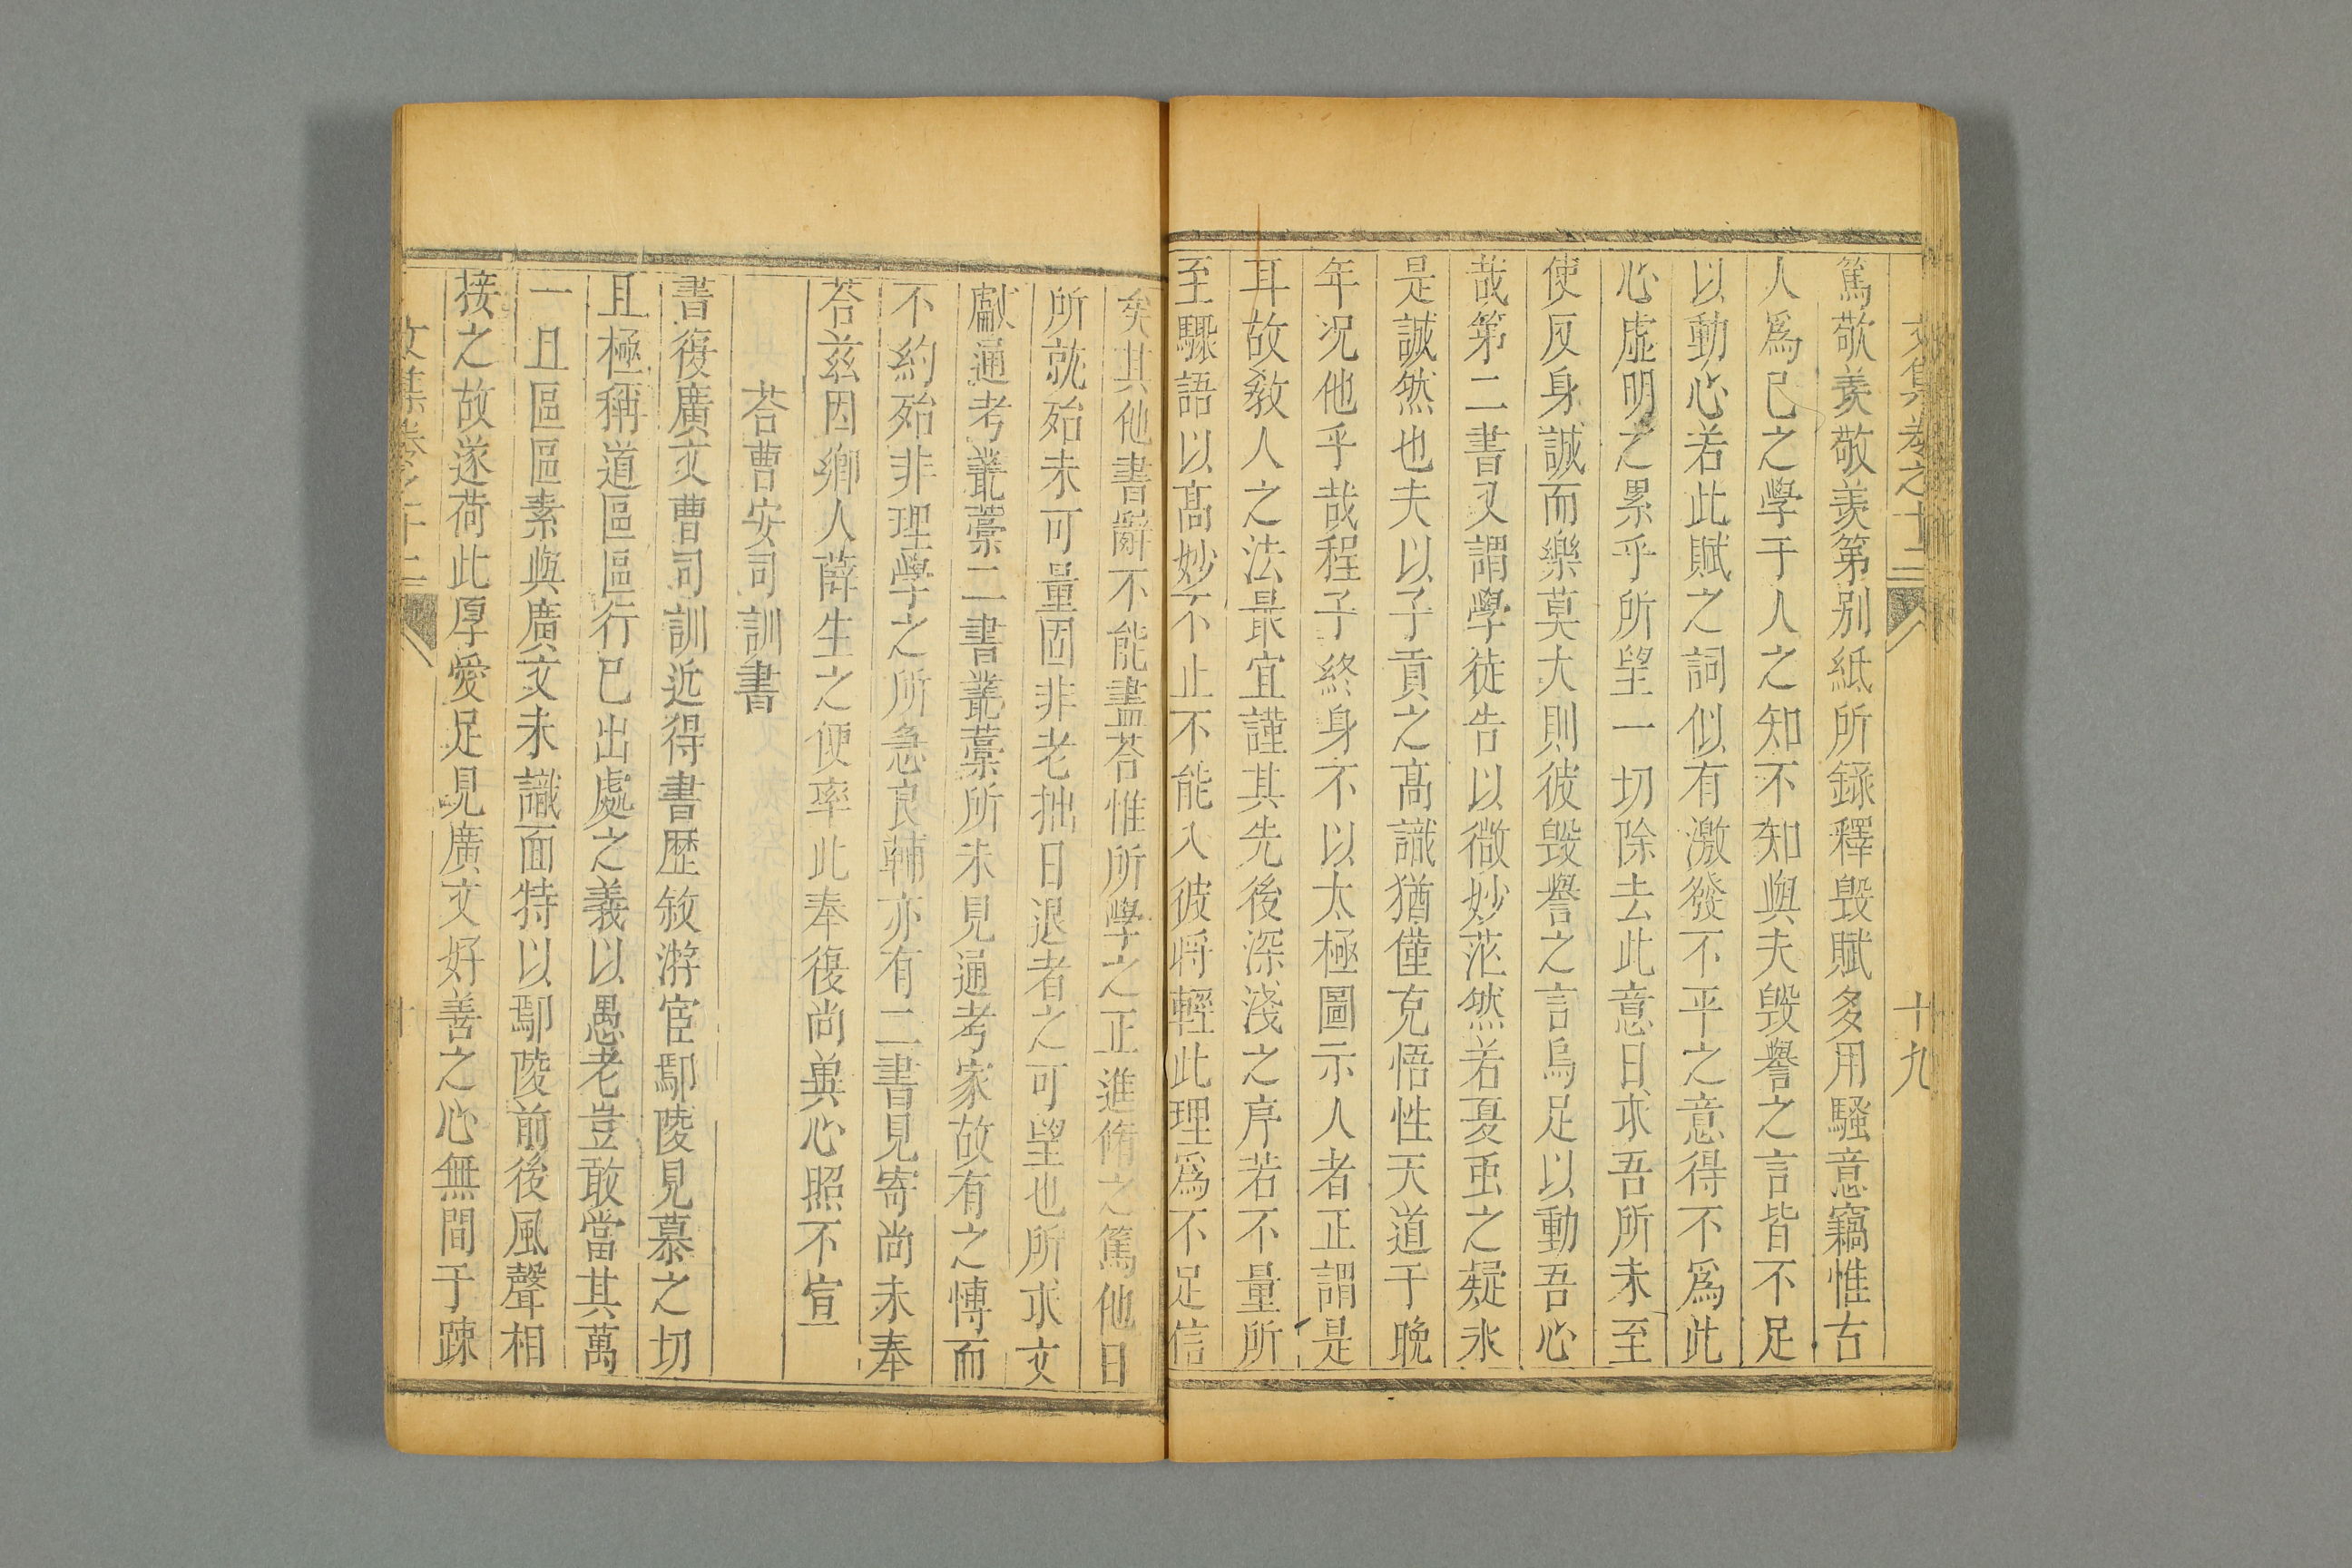 文集卷之十二 十九
篤敬羨敬羨第别紙所錄釋毀賦多用騷意竊惟古
人爲已之學于人之知不知與夫毀譽之言皆不足
以動心若此賦之詞似有激發不平之意得不爲此
心虛明之累乎所望一切除去此意日求吾所未至
使反身誠而樂莫大則彼毀譽之言烏足以動吾心
哉第二書又謂學徒告以微妙茫然若夏䖝之疑氷
是誠然也夫以子貢之髙識猶僅克悟性天道于晚
年况他乎哉程子終身不以太極圖示人者正謂是
耳故敎人之法最宜謹其先後深淺之序若不量所
至驟語以髙妙不止不能入彼将輕此理爲不足信
矣其他書辭不能盡荅惟所學之正進脩之篤他日
所就殆未可量固非老拙日退者之可望也所求文
獻通考叢藁二書叢藁所未見通考家故有之慱而
不約殆非理學之所急良輔亦有二書見寄尚未奉
荅兹因鄉人薛生之便率此奉復尚兾心照不宣
荅曹安司訓書
書復廣文曹司訓近得書歷敘游宦鄢陵見慕之切
且極稱道區區行已出處之義以愚老豈敢當其萬
一且區區素與廣文未識面特以鄢陵前後風聲相
接之故遂荷此厚愛足見廣文好善之心無間于踈
文集卷之十二